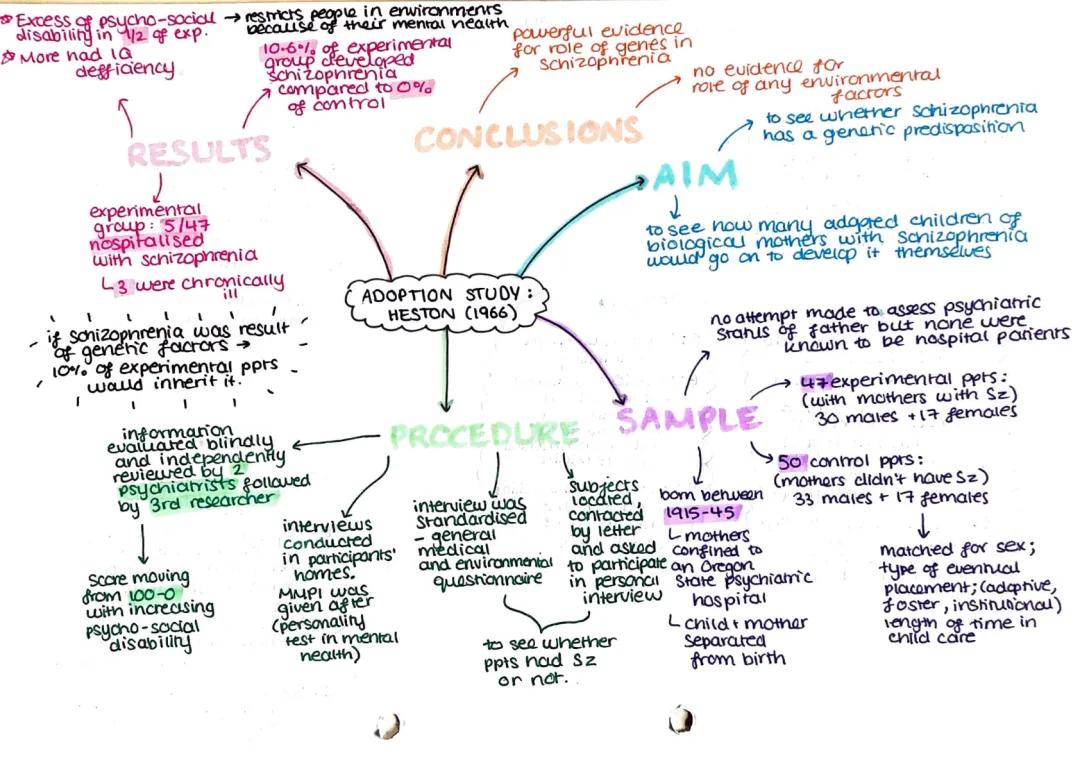 ☆ Excess of psycho-social
disability in 1/2 of exp.
→ restricts people in environments
because of their mental health
☆ More had IQ
defficiency
10.6% of experimental
group developed
schizophrenia
compared to 0%
of control
RESULTS
experimental
group: 5/47
hospitalised
with schizophrenia
↳ 3 were chronically
ill
if schizophrenia was result
of genetic factors →
10% of experimental ppts
would inherit it.
powerful evidence
for role of genes in
schizophrenia
no evidence for
role of any environmental
factors
CONCLUSIONS
to see whether schizophrenia
has a genetic predisposition
AIM
to see how many adopted children of
biological mothers with schizophrenia
would go on to develop it themselves
ADOPTION STUDY:
HESTON (1966)
no attempt made to assess psychiatric
status of father but none were
known to be hospital patients
SAMPLE
47 experimental ppts:
(with mothers with Sz)
30 males + 17 females
50 control ppts:
(mothers didn't have Sz)
33 males + 17 females
matched for sex;
type of eventual
placement; (adoptive,
foster, institutional)
length of time in
child care
born between
1915-45
↳ mothers
confined to
an Oregon
State psychiatric
hospital
↳ child + mother
separated
from birth
PROCEDURE
information
evaluated blindly
and independently
reviewed by 2
psychiatrists followed
by 3rd researcher
score moving
from 100-0
with increasing
psycho-social
disability
interviews
conducted
in participants'
homes.
MMPI was
given after
(personality
test in mental
health)
interview was
standardised
- general
medical
and environmental
questionnaire
subjects
located,
contacted
by letter
and asked
to participate
in personal
interview
to see whether
ppts had Sz
or not.